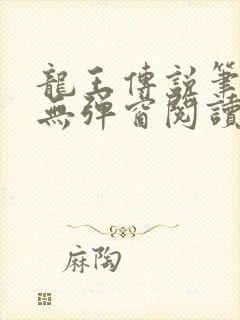 龍王傳說筆
無彈窗閱讀
麻陶